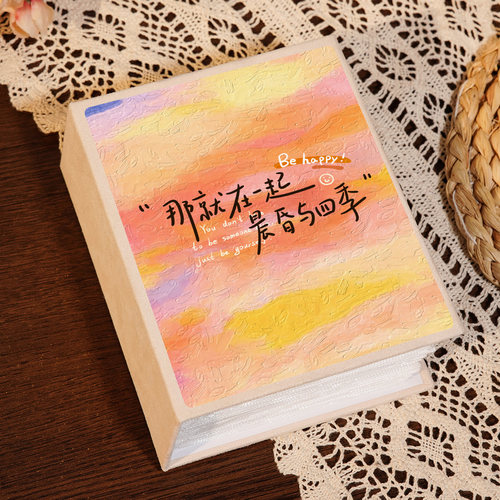 Be happy!
"那就在一起
晨昏与四季"
You don't
to be someone
Just be yourse